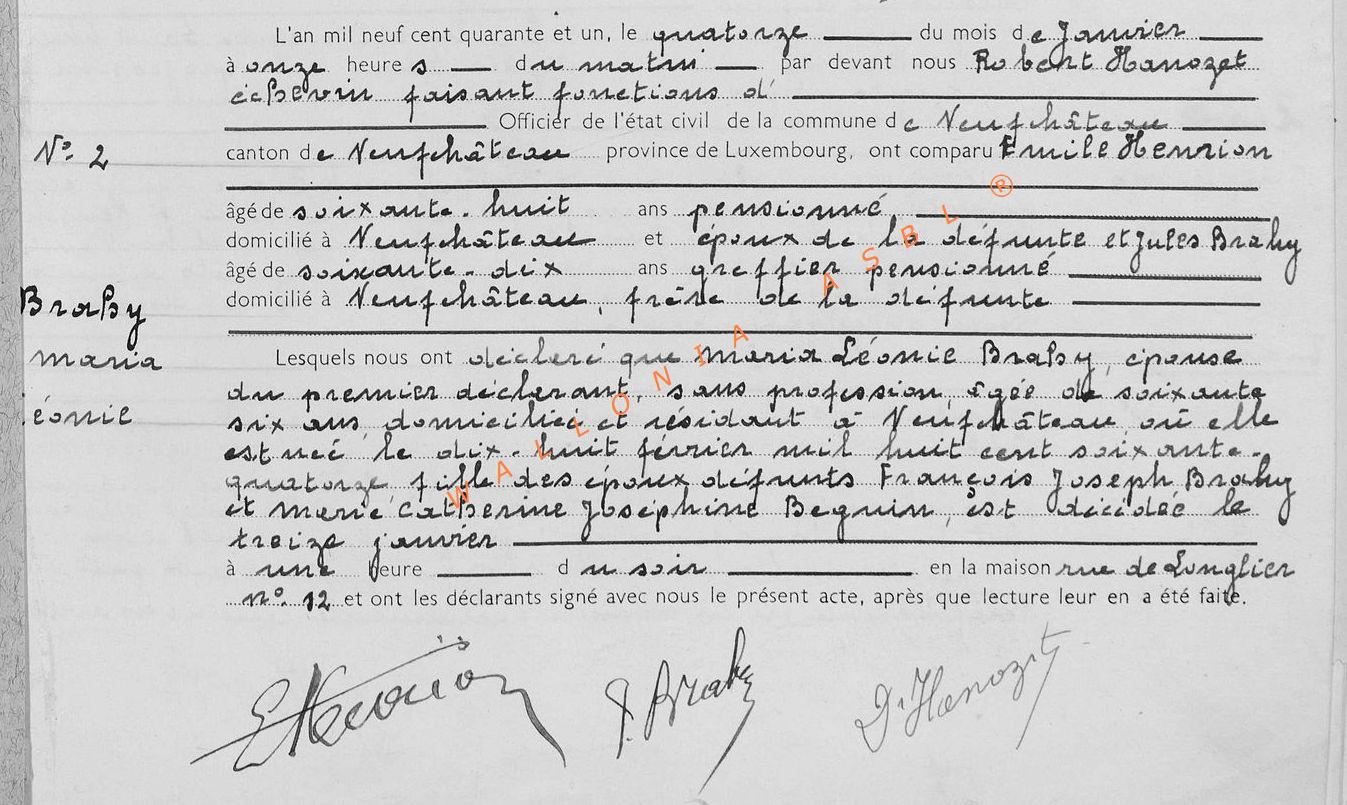 L'an mil neuf cent quarante et un, le quatorze du mois de Janvier
à onze heures du matin par devant nous Robert Hanozet
échevin faisant fonctions d'
Officier de l'état civil de la commune de Neufchâteau
N° 2
canton de Neufchâteau province de Luxembourg, ont comparu Emile Henrion
âgé de soixante-huit ans pensionné
domicilié à Neufchâteau et époux de la défunte et Jules Brahy
âgé de soixante-dix ans greffier pensionné
domicilié à Neufchâteau, frère de la défunte
Brahy
Maria
Léonie
Lesquels nous ont déclaré que Maria Léonie Brahy, épouse
du premier déclarant, sans profession, âgée de soixante
six ans, domiciliée et résidant à Neufchâteau, où elle
est née le dix-huit février mil huit cent soixante-
quatorze, fille des époux défunts François Joseph Brahy
et Marie Catherine Joséphine Beguin, est décédée le
treize janvier
à une heure du soir en la maison rue de Longlier
n° 12 et ont les déclarants signé avec nous le présent acte, après que lecture leur en a été faite.
WALLONIA ASBL ®
EHenrion J. Brahy Dr Hanozet